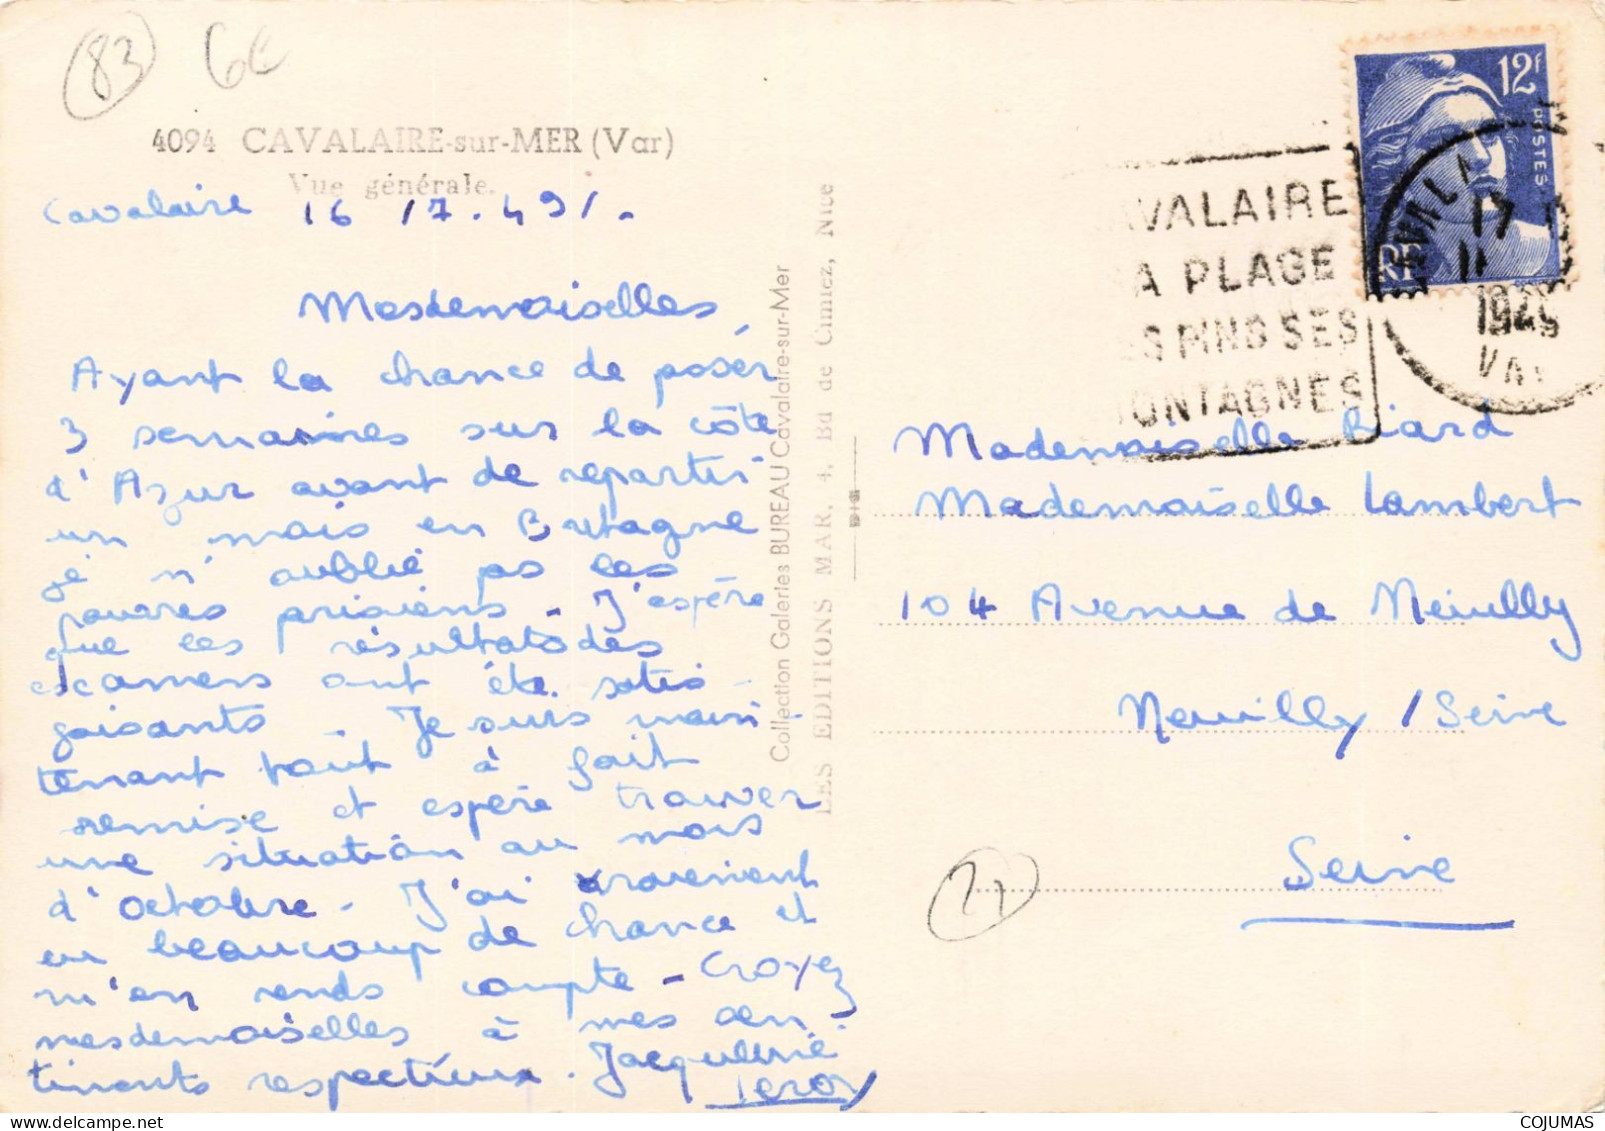 83 6€
4094 CAVALAIRE-sur-MER (Var)
Vue générale.
Cavalaire 16/7.49/.
Mesdemoiselles,
Ayant la chance de passer
3 semaines sur la côte
d'Azur avant de repartir
un mois en Bretagne
je n'oublie pas les
pauvres parisiens - J'espère
que les résultats des
examens ont été satis-
faisants. Je suis main-
tenant tout à fait
remise et espère trouver
une situation au mois
d'octobre - J'ai vraiment
eu beaucoup de chance et
m'en rends compte - Croyez
mesdemoiselles à mes sen-
timents respectueux. Jacqueline
Leroy
Collection Galeries BUREAU Cavalaire-sur-Mer
LES EDITIONS MAR, 4, Bd de Cimiez, Nice
12F
POSTES
RF
AVALAIRE
SA PLAGE
ES PINS SES
MONTAGNES
17
VAR
Mademoiselle Riard
Mademoiselle Lambert
104 Avenue de Neuilly
Neuilly / Seine
Seine
COJUMAS